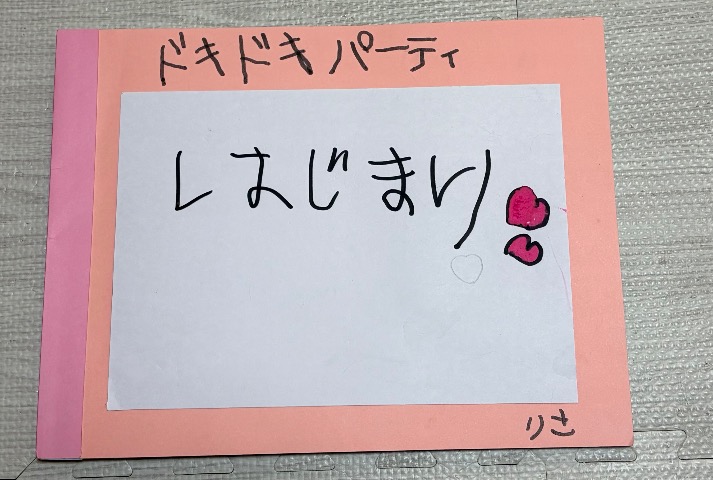 ドキドキパーティ
はじまり
りさ